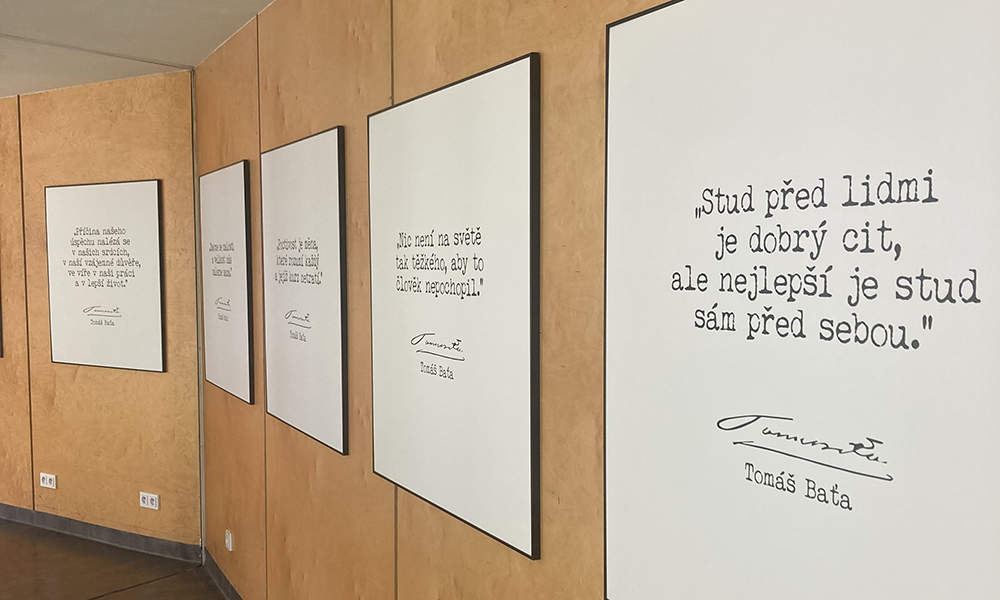 „Příčina našeho
úspěchu nalézá se
v našich srdcích,
v naší vzájemné důvěře,
ve víře v naši práci
a v lepší život."
Tomáš Baťa
Tomáš Baťa
„Poctivost je měna,
které rozumí každý
a jejíž kurz netratí."
Tomáš Baťa
„Nic není na světě
tak těžkého, aby to
člověk nepochopil."
Tomáš Baťa
„Stud před lidmi
je dobrý cit,
ale nejlepší je stud
sám před sebou."
Tomáš Baťa